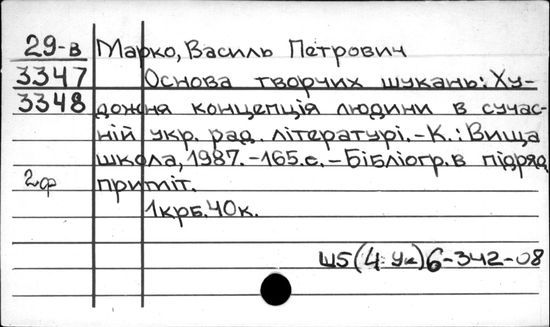 29-в Марко, Василь Петрович
3347 Основа творчих шукань: Ху-
3348 дожня концепція людини в сучас-
ній укр. рад. літературі. - К.: Вища
школа, 1987. - 165.с. - Бібліогр. в підряд.
2ф приміт.
1крб. 40к.
Ш5(4Ук)6-342-08